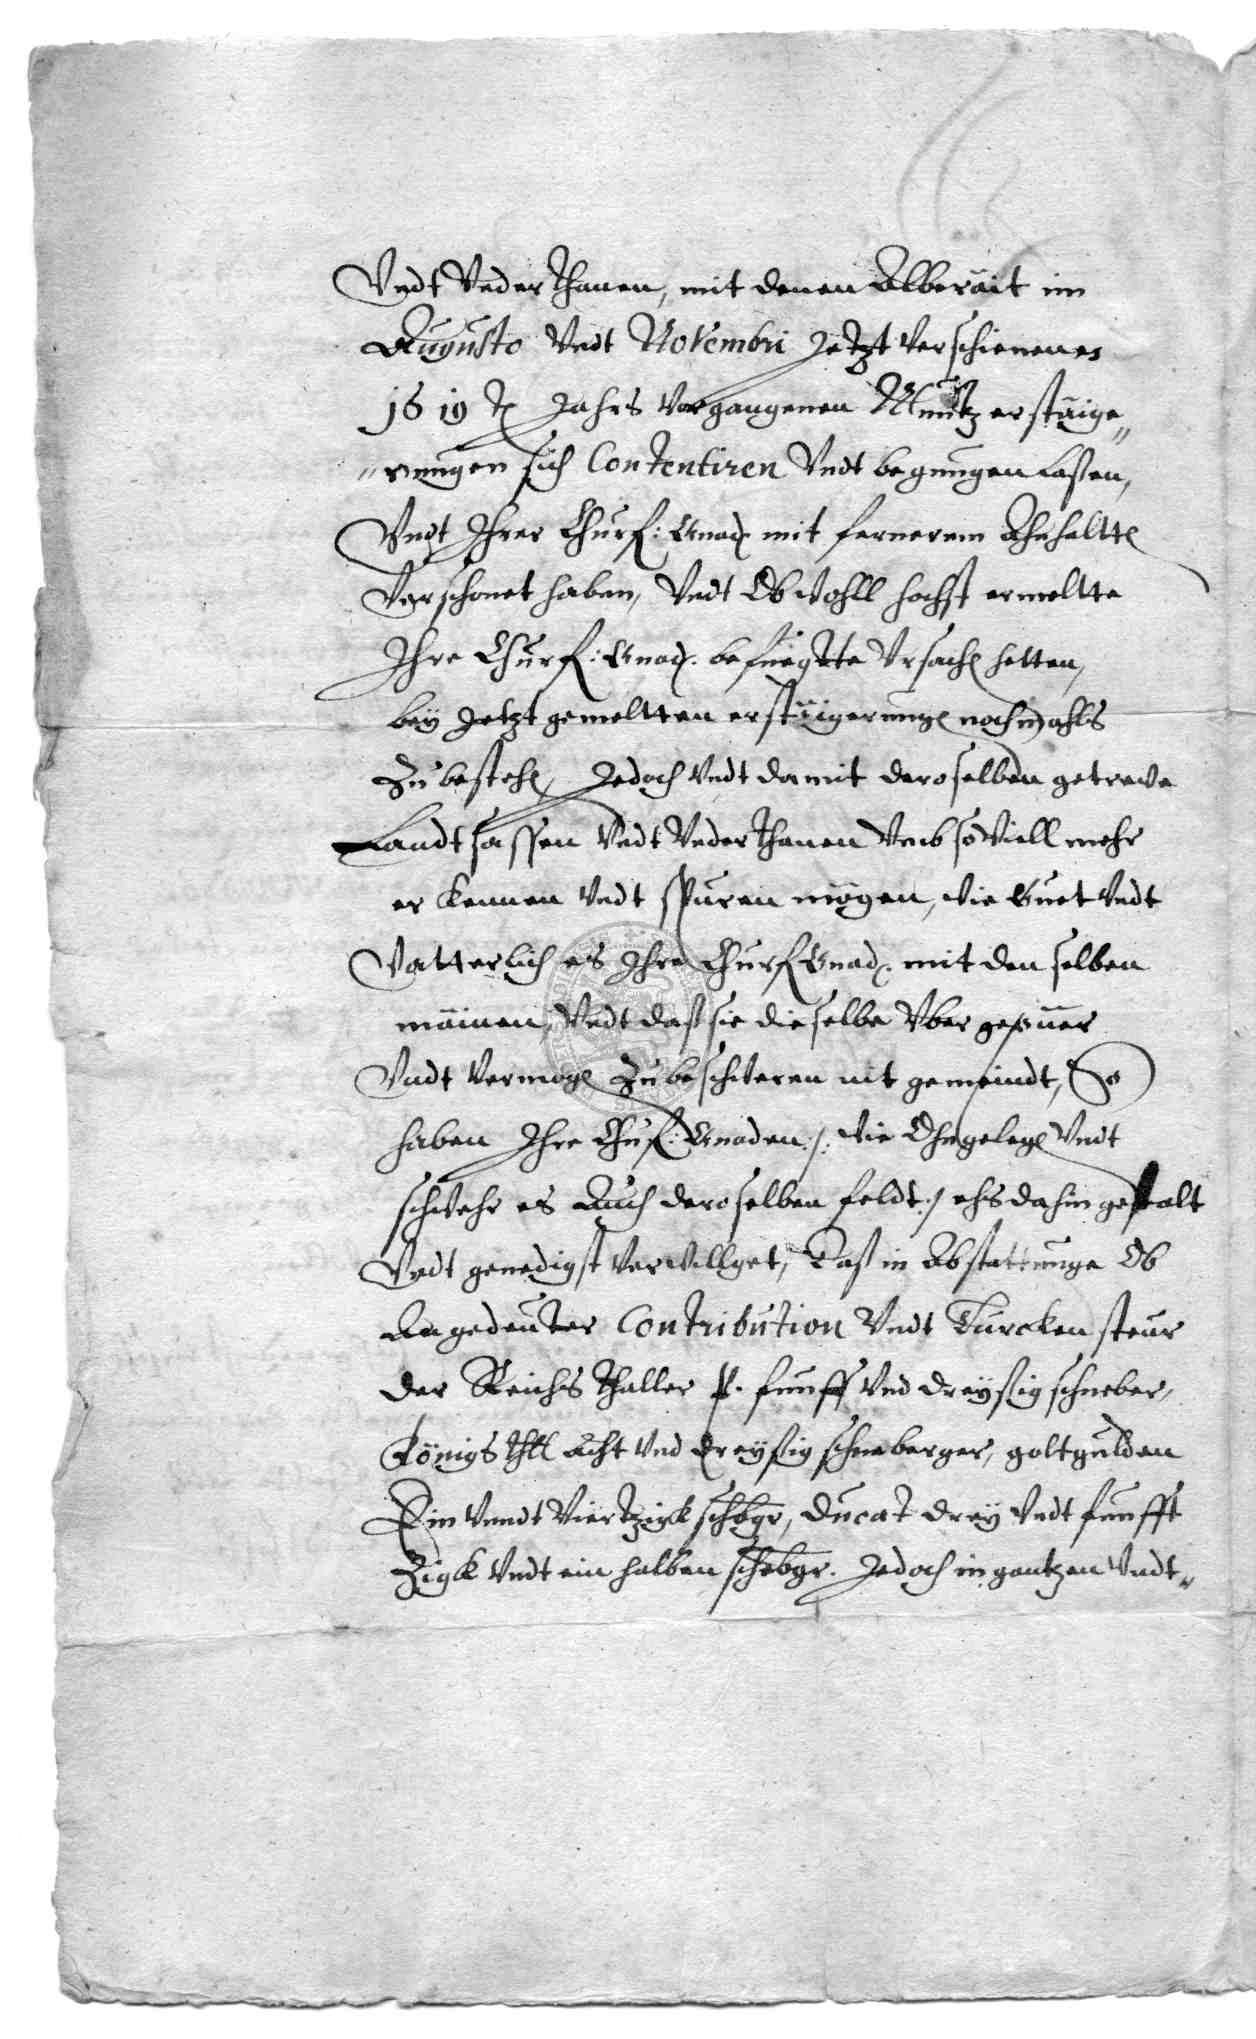 Vndt Vnderthanen, mit denen Alberäit im
Augusto Vndt Novembri Jetzt Verschienenes
1619 Jahrs Vorgangenen Müntz erstäige„
„rungen sich Contentiren Vndt begnugen laßen,
Vndt Ihrer Churf: Gnad. mit fernerem Anhaltt
Verschonet haben, Vndt Obwohll hochst ermeltte
Ihre Churf: Gnad. befuegtte Vrsach hetten,
beÿ Jetzt gemeltten erstäigerung nochmahls
Zubesteh, Jedoch Vndt damit deroselben getrewe
Landtsassen Vndt Vnderthanen Vmb so Viell mehr
erkennen Vndt spuren mögen, wie Guet Vndt
Vatterlich es Ihre Churf Gnad. mit denselben
mäinen, Vndt daß sie dieselbe Vber gepuer
Vndt Vermög Zubeschweren nit gemeindt, So
haben Ihre Chuf: Gnaden /: wie Vngeleg Vndt
schwehr es Auch deroselben feldt :/ ehs dahin gestalt
Vndt genedigst Verwillget, Daß in Abstattunge Ob
Angedeuter Contribution Vndt Turckensteur
der Reichsthaller p. funff Vnd dreyßig schneber,
Königs thll acht Vnd dreyßig schneberger, goltgulden
Ein Vnndt Viertzigk schbgr, Ducat dreÿ Vndt funfft
Zigk Vndt ein halben schebgr. Jedoch in gantzen Vndt„